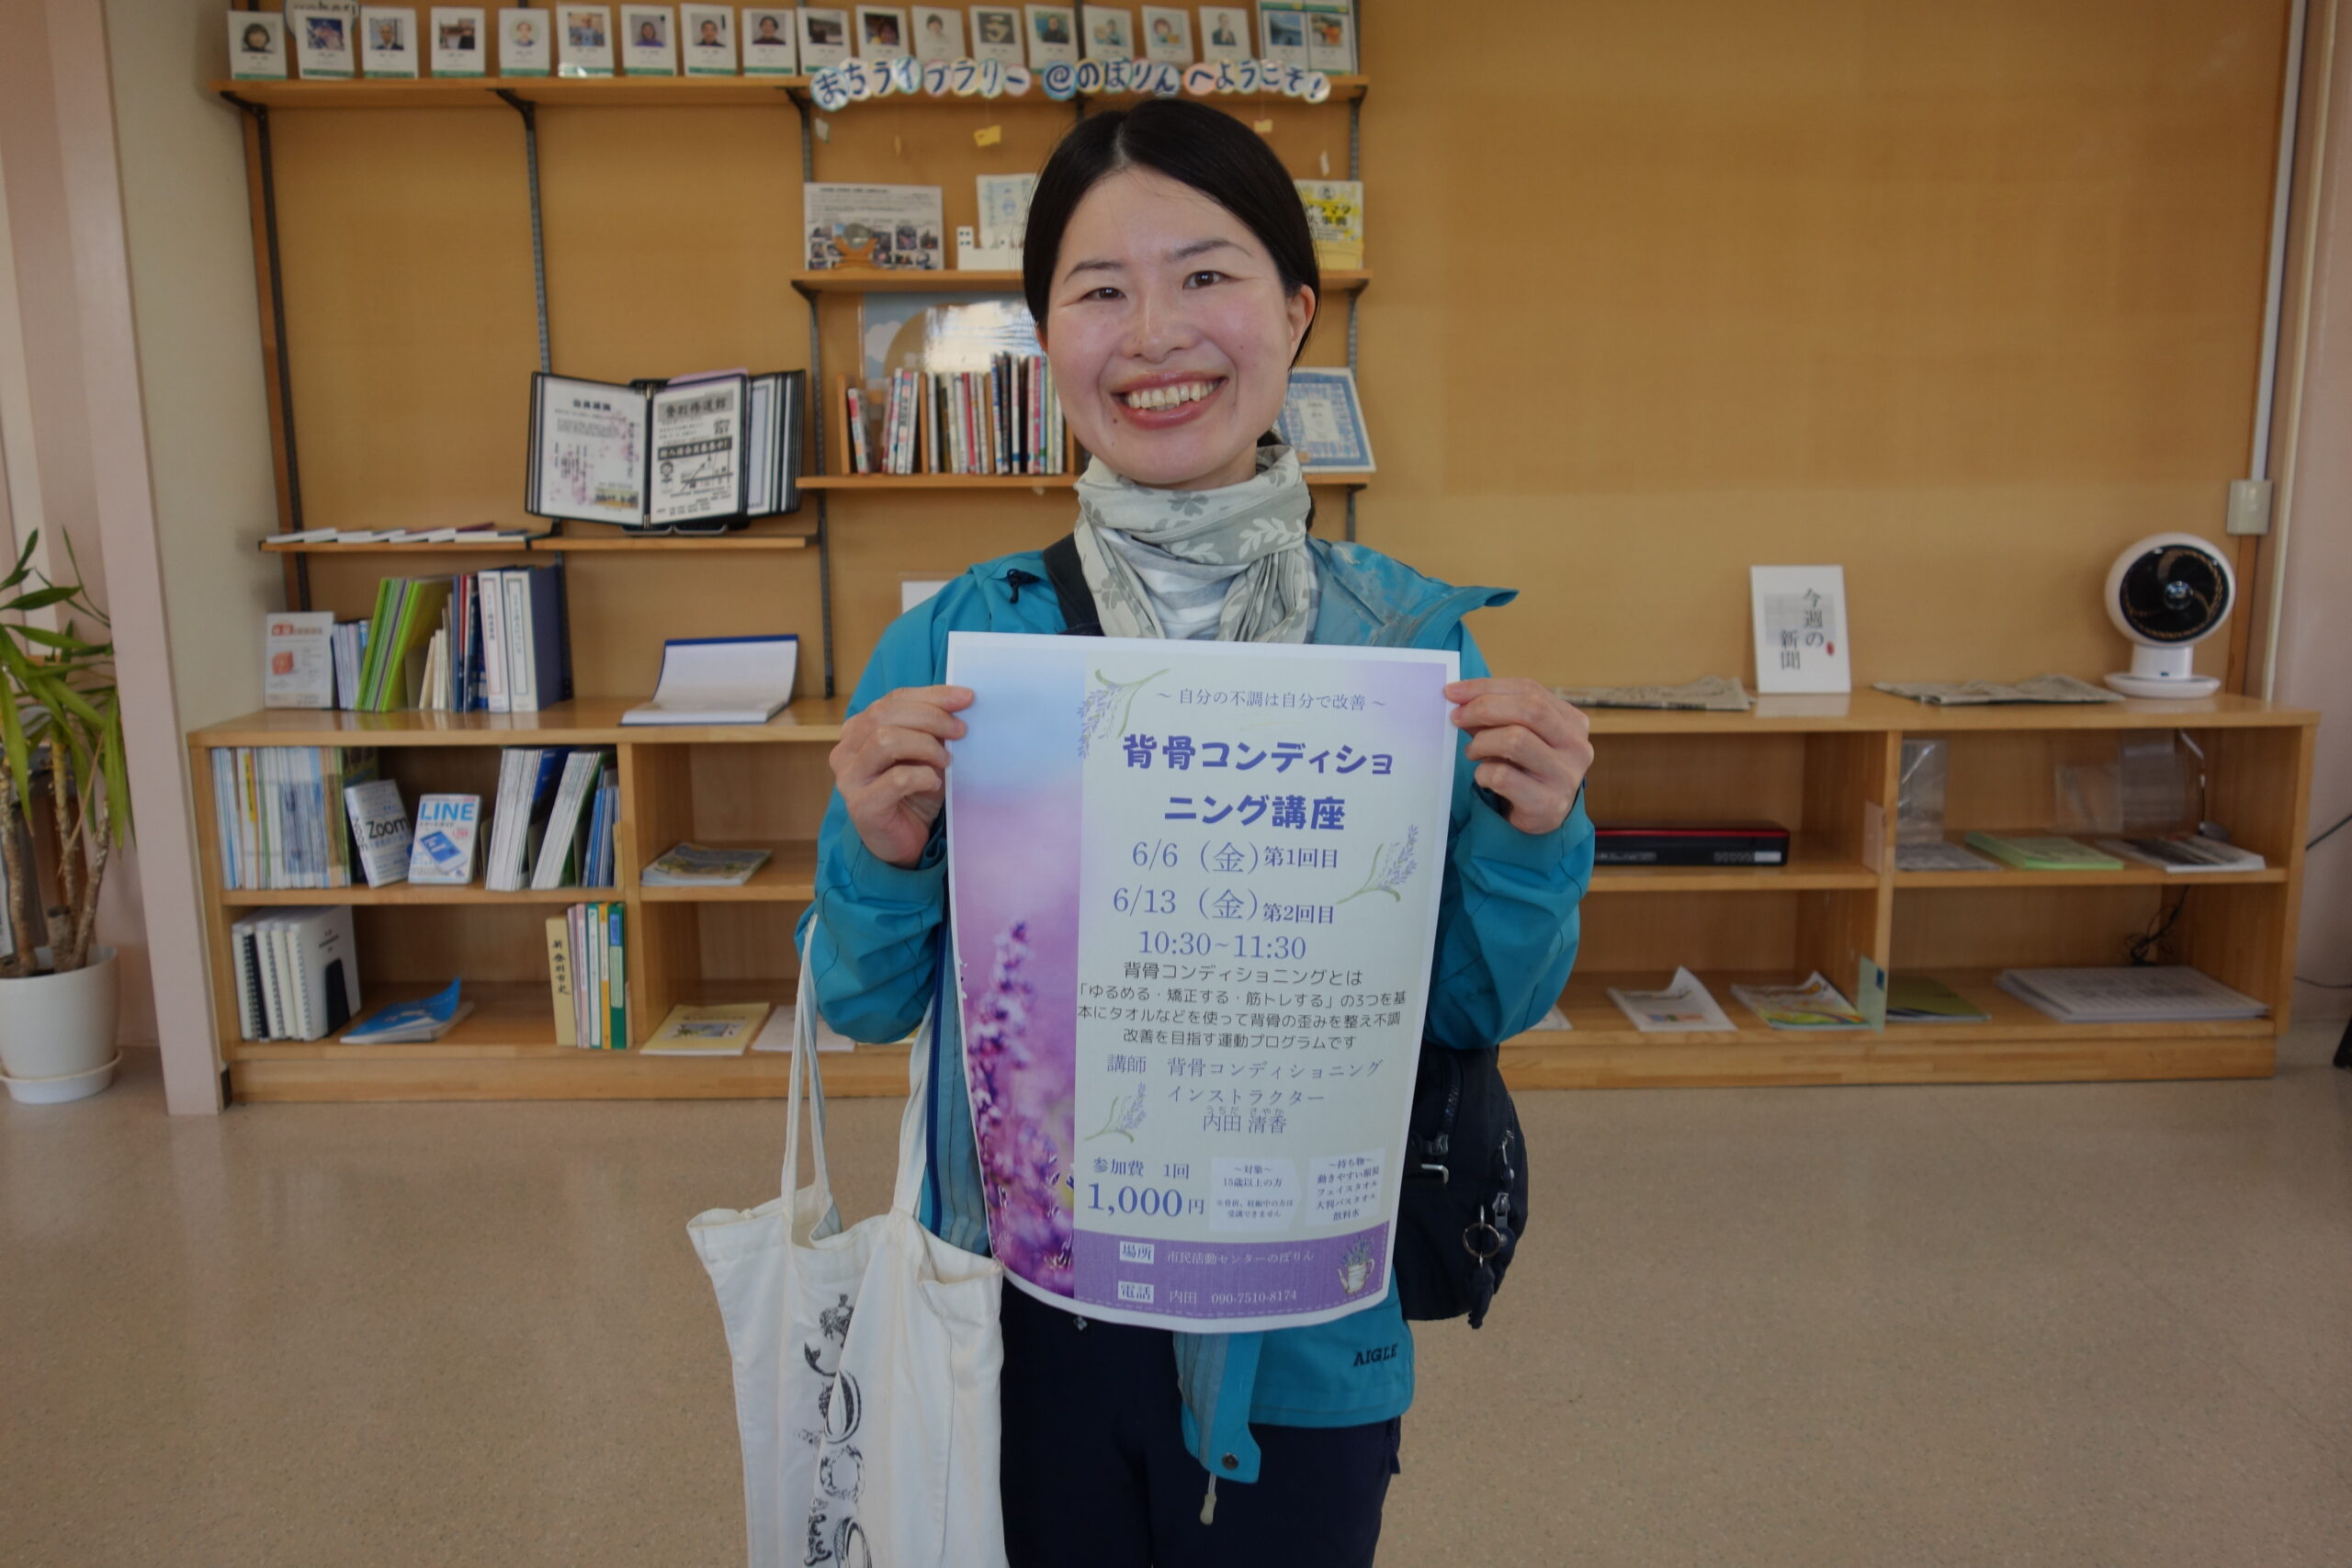 まちライブラリー@のぼりんへようこそ!
今週の
新聞
LINE
Zoom
新登別市史
～ 自分の不調は自分で改善 ～
背骨コンディショ
ニング講座
6/6（金）第1回目
6/13（金）第2回目
10:30~11:30
背骨コンディショニングとは
「ゆるめる・矯正する・筋トレする」の3つを基
本にタオルなどを使って背骨の歪みを整え不調
改善を目指す運動プログラムです
講師 背骨コンディショニング
インストラクター
うちだ さやか
内田 清香
参加費 1回
1,000円
～対象～
15歳以上の方
※骨折、妊娠中の方は
受講できません
～持ち物～
動きやすい服装
フェイスタオル
大判バスタオル
飲料水
場所 市民活動センターのぼりん
電話 内田 090-7510-8174
AIGLE